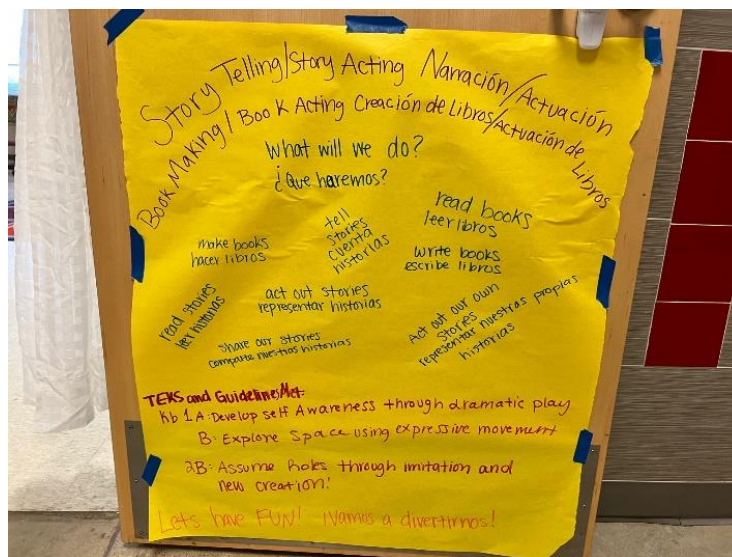 Story Telling/Story Acting Narración/Actuación
Book Making/Book Acting Creación de Libros/Actuación de Libros
What will we do?
¿Que haremos?
make books
hacer libros
tell
stories
cuenta
historias
read books
leer libros
write books
escribe libros
read stories
leer historias
act out stories
representar historias
share our stories
comparte nuestras historias
Act out our own
stories
representar nuestras propias
historias
TEKS and Guidelines Met:
Kb 1A: Develop self Awareness through dramatic play
B: Explore Space using expressive movement
2B: Assume Roles through imitation and
new creation!
Lets have FUN! ¡Vamos a divertirnos!